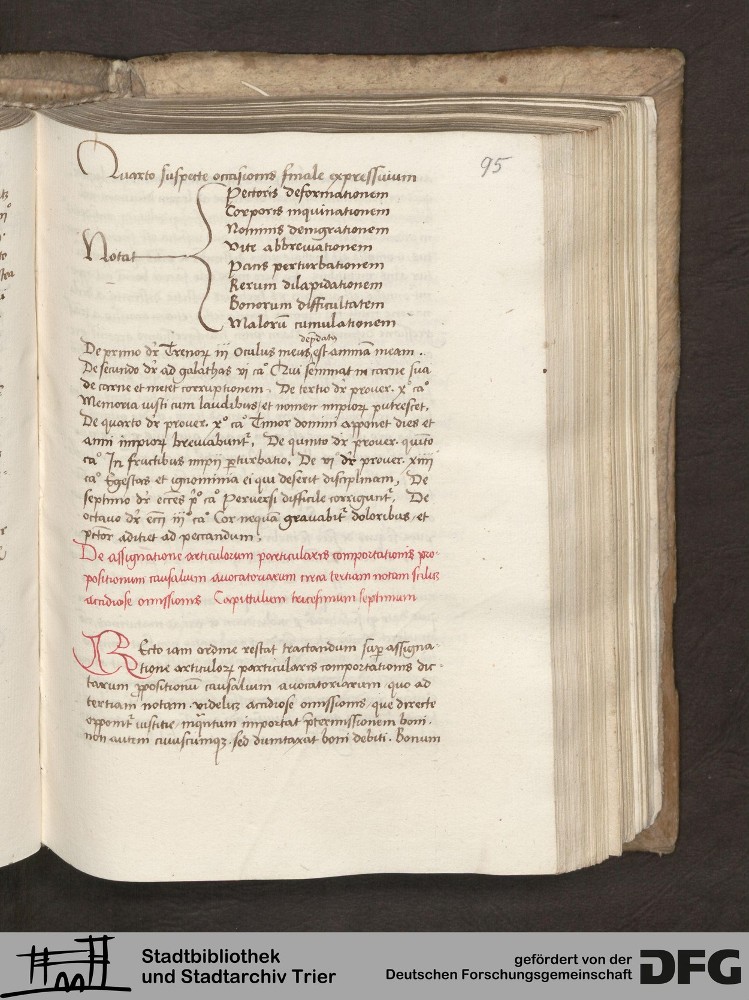 95
Quarto suspecte occasionis finale expressiuum
Pectoris deformationem
Corporis inquinationem
Nominis denigrationem
Notat
vite abbreuiationem
Pacis perturbationem
Rerum dilapidationem
Bonorum difficultatem
Malorū cumulationem
depdatꝰ
De primo dr̄ Trenoꝝ iij Oculus meus est animam meam .
De secundo dr̄ ad galathas vj caº Qui seminat in carne sua
de carne et metet corruptionem . De tertio dr̄ prouer. xº caº
Memoria iusti cum laudibus et nomen impioꝝ putrescet.
De quarto dr̄ prouer. xº caº Timor domini apponet dies et
anni impioꝝ breuiabunt᷑. De quinto dr̄ prouer. quīto
caº In fructibus impij ꝑturbatio. De vj dr̄ prouer. xiij
caº Egestas et ignominia ei qui deserit disciplinam. De
septimo dr̄ ecces pº caº Peruersi difficile corrigunt᷑. De
octauo dr̄ ecci iijº caº Cor nequā grauabit᷑ doloribus et
pctor adiciet ad peccandum.
De assignatione articulorum particularis comportationis pro-
positionum causalium auocatoriarum circa tertiam notam scilicꝫ
accidiose omissionis Capittulum tricesimum septimum
REcto iam ordine restat tractandum suꝑ assigna-
tione articuloꝝ particularis comportationis dic-
tarum ꝓpositionū causalium auocatoriarum quo ad
tertiam notam . videlicꝫ accidiose omissionis . que directe
opponit᷑ iusticie . inquātum importat p̄termissionem boni .
non autem cuiuscumqꝫ . sed dumtaxat boni debiti . Bonum
Stadtbibliothek
und Stadtarchiv Trier
gefördert von der
Deutschen Forschungsgemeinschaft
DFG